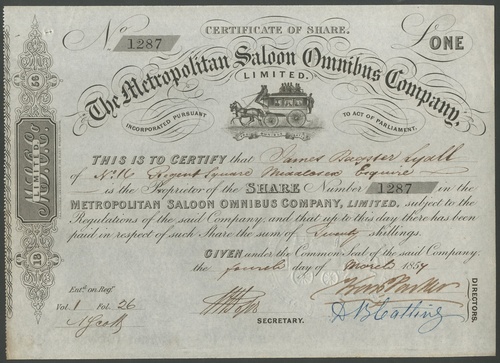 CERTIFICATE OF SHARE.
No 1287
£ONE
The Metropolitan Saloon Omnibus Company,
LIMITED.
INCORPORATED PURSUANT
TO ACT OF PARLIAMENT.
THIS IS TO CERTIFY that James Lyall
of No 16 Regent Square Middlesex Esquire
is the Proprietor of the SHARE Number 1287 in the
METROPOLITAN SALOON OMNIBUS COMPANY, LIMITED, subject to the
Regulations of the said Company; and that up to this day there has been
paid in respect of such Share the sum of Twenty shillings.
GIVEN under the Common Seal of the said Company,
the fourth day of March 1857
Entd. on Regr.
Vol. 1 Fol. 26
SECRETARY.
DIRECTORS.
M.S.O.C.
LIMITED